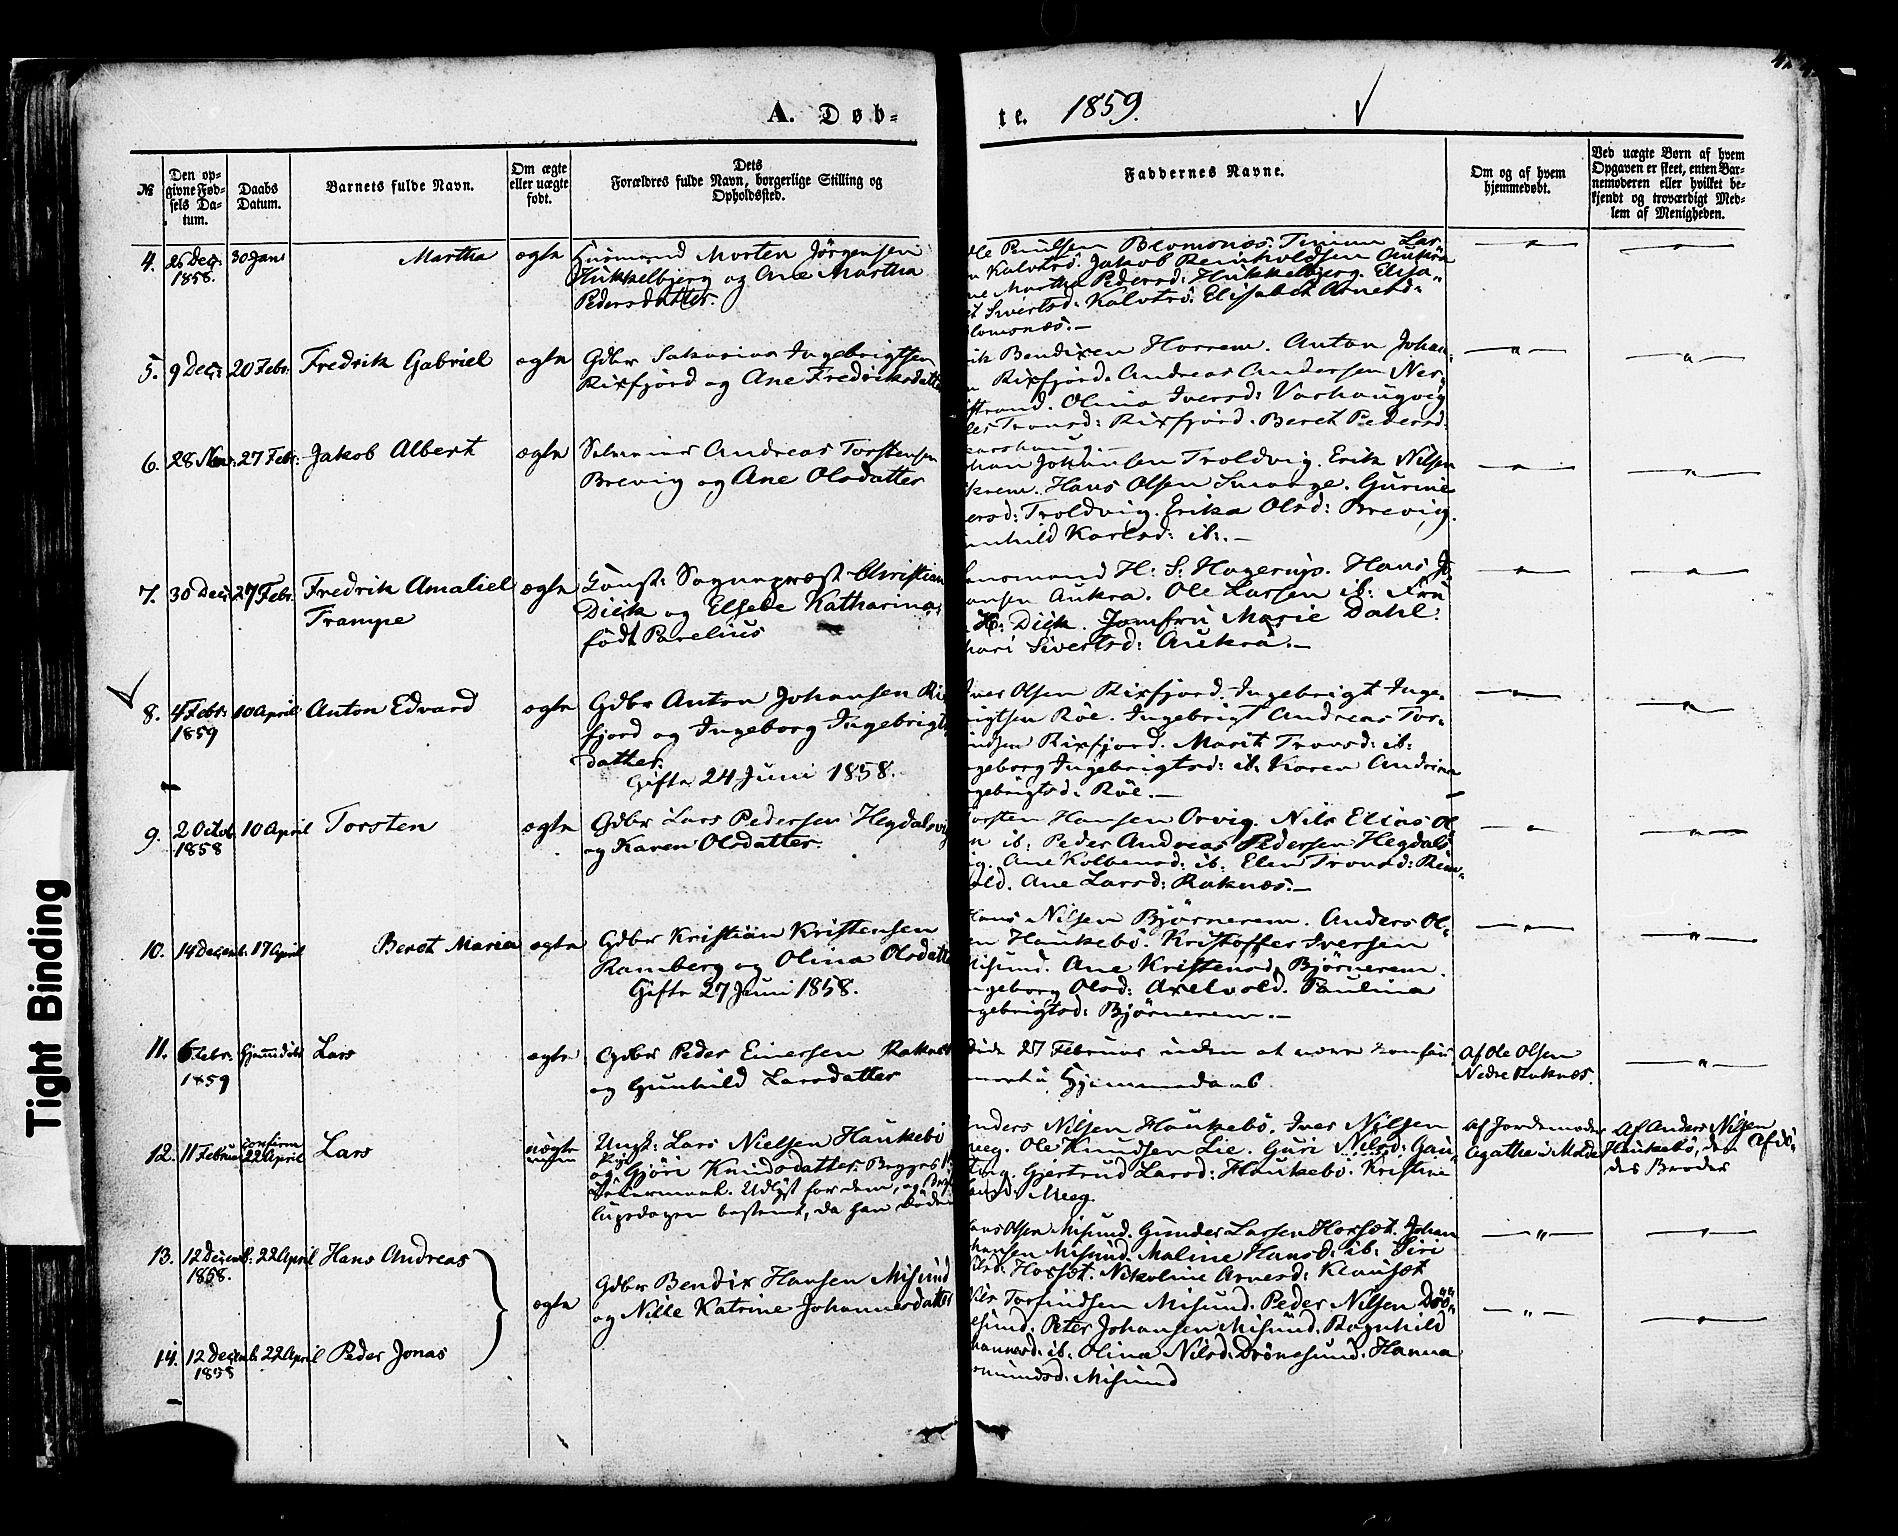 A. Døb-
te. 1859.
№
Den op-
givne Fød-
sels Da-
tum.
Daabs
Datum.
Barnets fulde Navn.
Om ægte
eller uægte
født.
Dets
Forældres fulde Navn, borgerlige Stilling og
Opholdssted.
Faddernes Navne.
Om og af hvem
hjemmedøbt.
Ved uægte Børn af hvem
Opgaven er skeet, enten Bar-
nemoderen eller hvilket be-
kjendt og troværdigt Med-
lem af Menigheden.
4. 26 Dec: 1858. 30 Jan: Martha ægte
Huusmand Morten Jørgensen
Hukkelbjerg og Ane Martha
Pedersdatter.
Poulsen Blomsnæs. Lar
Kalvtrø. Jakob Reinholdsen Aukra
Martha Pedersd: Hukkelbjerg. Elisa-
Sivertsd: Kalvtrø. Elisabet Arnesd:
lomsnæs.—
5. 9 Dec: 20 Febr: Fredrik Gabriel ægte
Gdbr Sakarias Ingebrigtsen
Rixfjord og Ane Fredriksdatte
rik Bendixen Horrem. Anton Johan-
Rixfjord. Andreas Andersen Ner-
strand. Olina Iversd: Varhaugvig
Tronsd: Rixfjord. Beret Pedersd:
6. 28 Nov: 27 Febr: Jakob Albert ægte
Andreas Torstensen
Brevig og Ane Olsdatter
han Johansen Troldvig. Erik Nilsen
krem. Hans Olsen Smaage. Gurine
ersd: Troldvig. Erika Olsd: Brevig.
unhild Karlsd: ib:.—
7. 30 Dec: 27 Febr: Fredrik Amaliel ægte
Trampe
Const: Sognepræst Christian
Dick og Elsebe Katharina,
født Parelius
ensmand H: S: Hagerup. Hans Jo-
ansen Aukra. Ole Larsen ib: Fru
H: Dick. Jomfru Marie Dahl.
hari Sivertsd: Aukra.—
8. 4 Febr: 1859 10 April Anton Edvard ægte
Gdbr Anton Johansen Rix
fjord og Ingeborg Ingebrigts
datter.
Gifte 24 Juni 1858.
Iver Olsen Rixfjord. Ingebrigt Inge-
rigtsen Röe. Ingebrigt Andreas Tor-
indsen Rixfjord. Marit Tronsd: ib:
ngeborg Ingebrigtsd: ib: Karen Andrina
ngebrigtsd: Röe.—
9. 2 Octob: 1858 10 April Torsten ægte
Gdbr Lars Pedersen Hegdalsvig
og Karen Olsdatter.
orsten Hansen Orvig. Nils Elias Ol
n ib: Peder Andreas Pedersen Hegdals-
ig. Ane Kolbensd: ib: Elen Tronsd: Rem-
old. Ane Larsd: Raknæs.—
10. 14 Decemb: 17 April Beret Maria ægte
Gdbr Kristian Kristensen
Ramberg og Olina Olsdatte
Gifte 27 Juni 1858.
Hans Nilsen Björnerem. Anders Ol-
en Haukebö. Kristoffer Iversen
Misund. Ane Kristensd. Björnerem.
ngeborg Olsd: Axelvold. Paulina
ngebrigtsd: Björnerem.—
11. 6 Febr: 1859 Hjemmedöbt Lars ægte
Gdbr Peder Einersen Raknæs
og Gunhild Larsdatter
döde 27 Februar uden at være
Hjemmedaab.
Af Ole Olsen
Nedre Raknæs.
12. 11 Februar confirm 22 April Lars uægte
Ungk: Lars Nielsen Haukebö
Pige
og Gjöri Knudsdatter. Begges 1
Leiermaal. Udlyst for dem, og Bryl
lupsdagen bestemt, da han döde
nders Nilsen Haukebö. Iver Nilsen
eeg. Ole Knudsen Lie. Guri Nilsd: Gau-
Gjertrud Larsd: Haukebö. Kristine
Meeg.
Af Jordemoder
Agathe i Molde
Af Anders Nilsen
Haukebö, den Afdö-
des Broder
13. 12 Decemb: 1858. 22 April Hans Andreas
ans Olsen Misund. Gunder Larsen Horsæt. Johan
hansen Misund. Maline Hansd: ib: Siri
Horsæt. Nikoline Arnesd: Klausæt
Gdbr Bendix Hansen Misund
ægte og Nille Katrine Johannesdatter
14. 12 Decemb: 1858 22 April Peder Jonas
Nils Torfindsen Misund. Peder Nilsen Drö-
esund. Peter Johansen Misund. Ragnhild
hannesd: ib: Olina Nilsd: Drönesund. Hanna
omundsd: Misund
Tight Binding